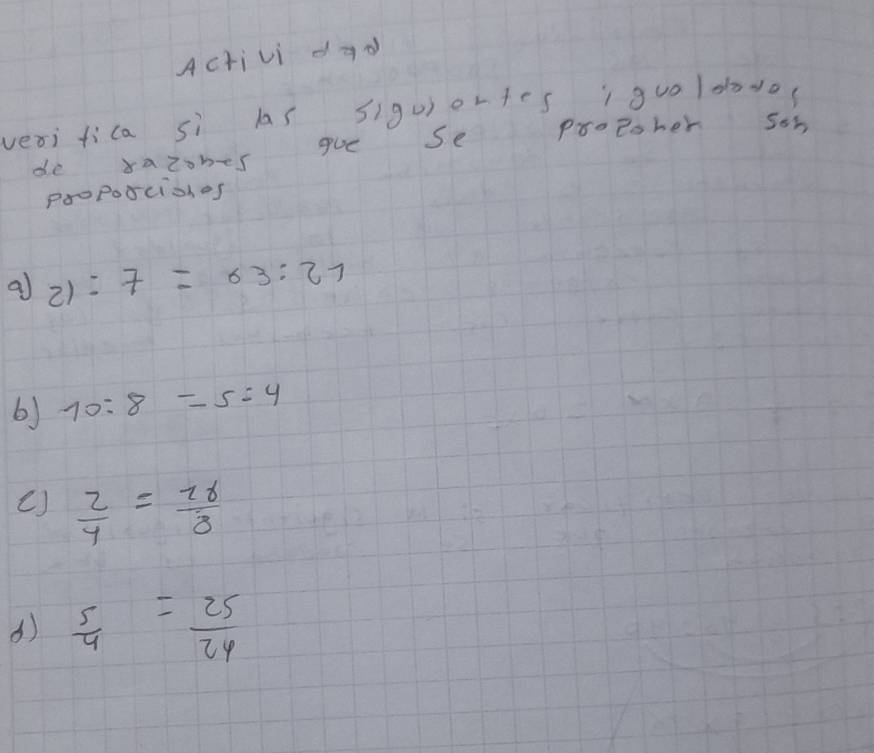 Actividad
verifica si las siguientes igualdades
de razones que se proponen son
proporciones
a) 21 : 7 = 63 : 21
b) 10 : 8 = 5 : 4
c) 2/4 = 16/8
d) 5/4 = 25/24